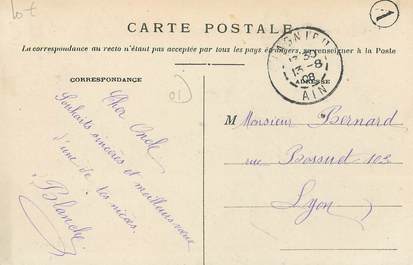 lot
CARTE POSTALE
A
La correspondance au recto n'étant pas acceptée par tous les pays étrangers, se renseigner à la Poste
LAGNIEU
13-8
08
AIN
CORRESPONDANCE
ADRESSE
01
Cher Oncle
Souhaits sincères et meilleurs vœux
d'une de tes nièces.
Blanche
M Monsieur Bernard
rue Bossud 103
Lyon